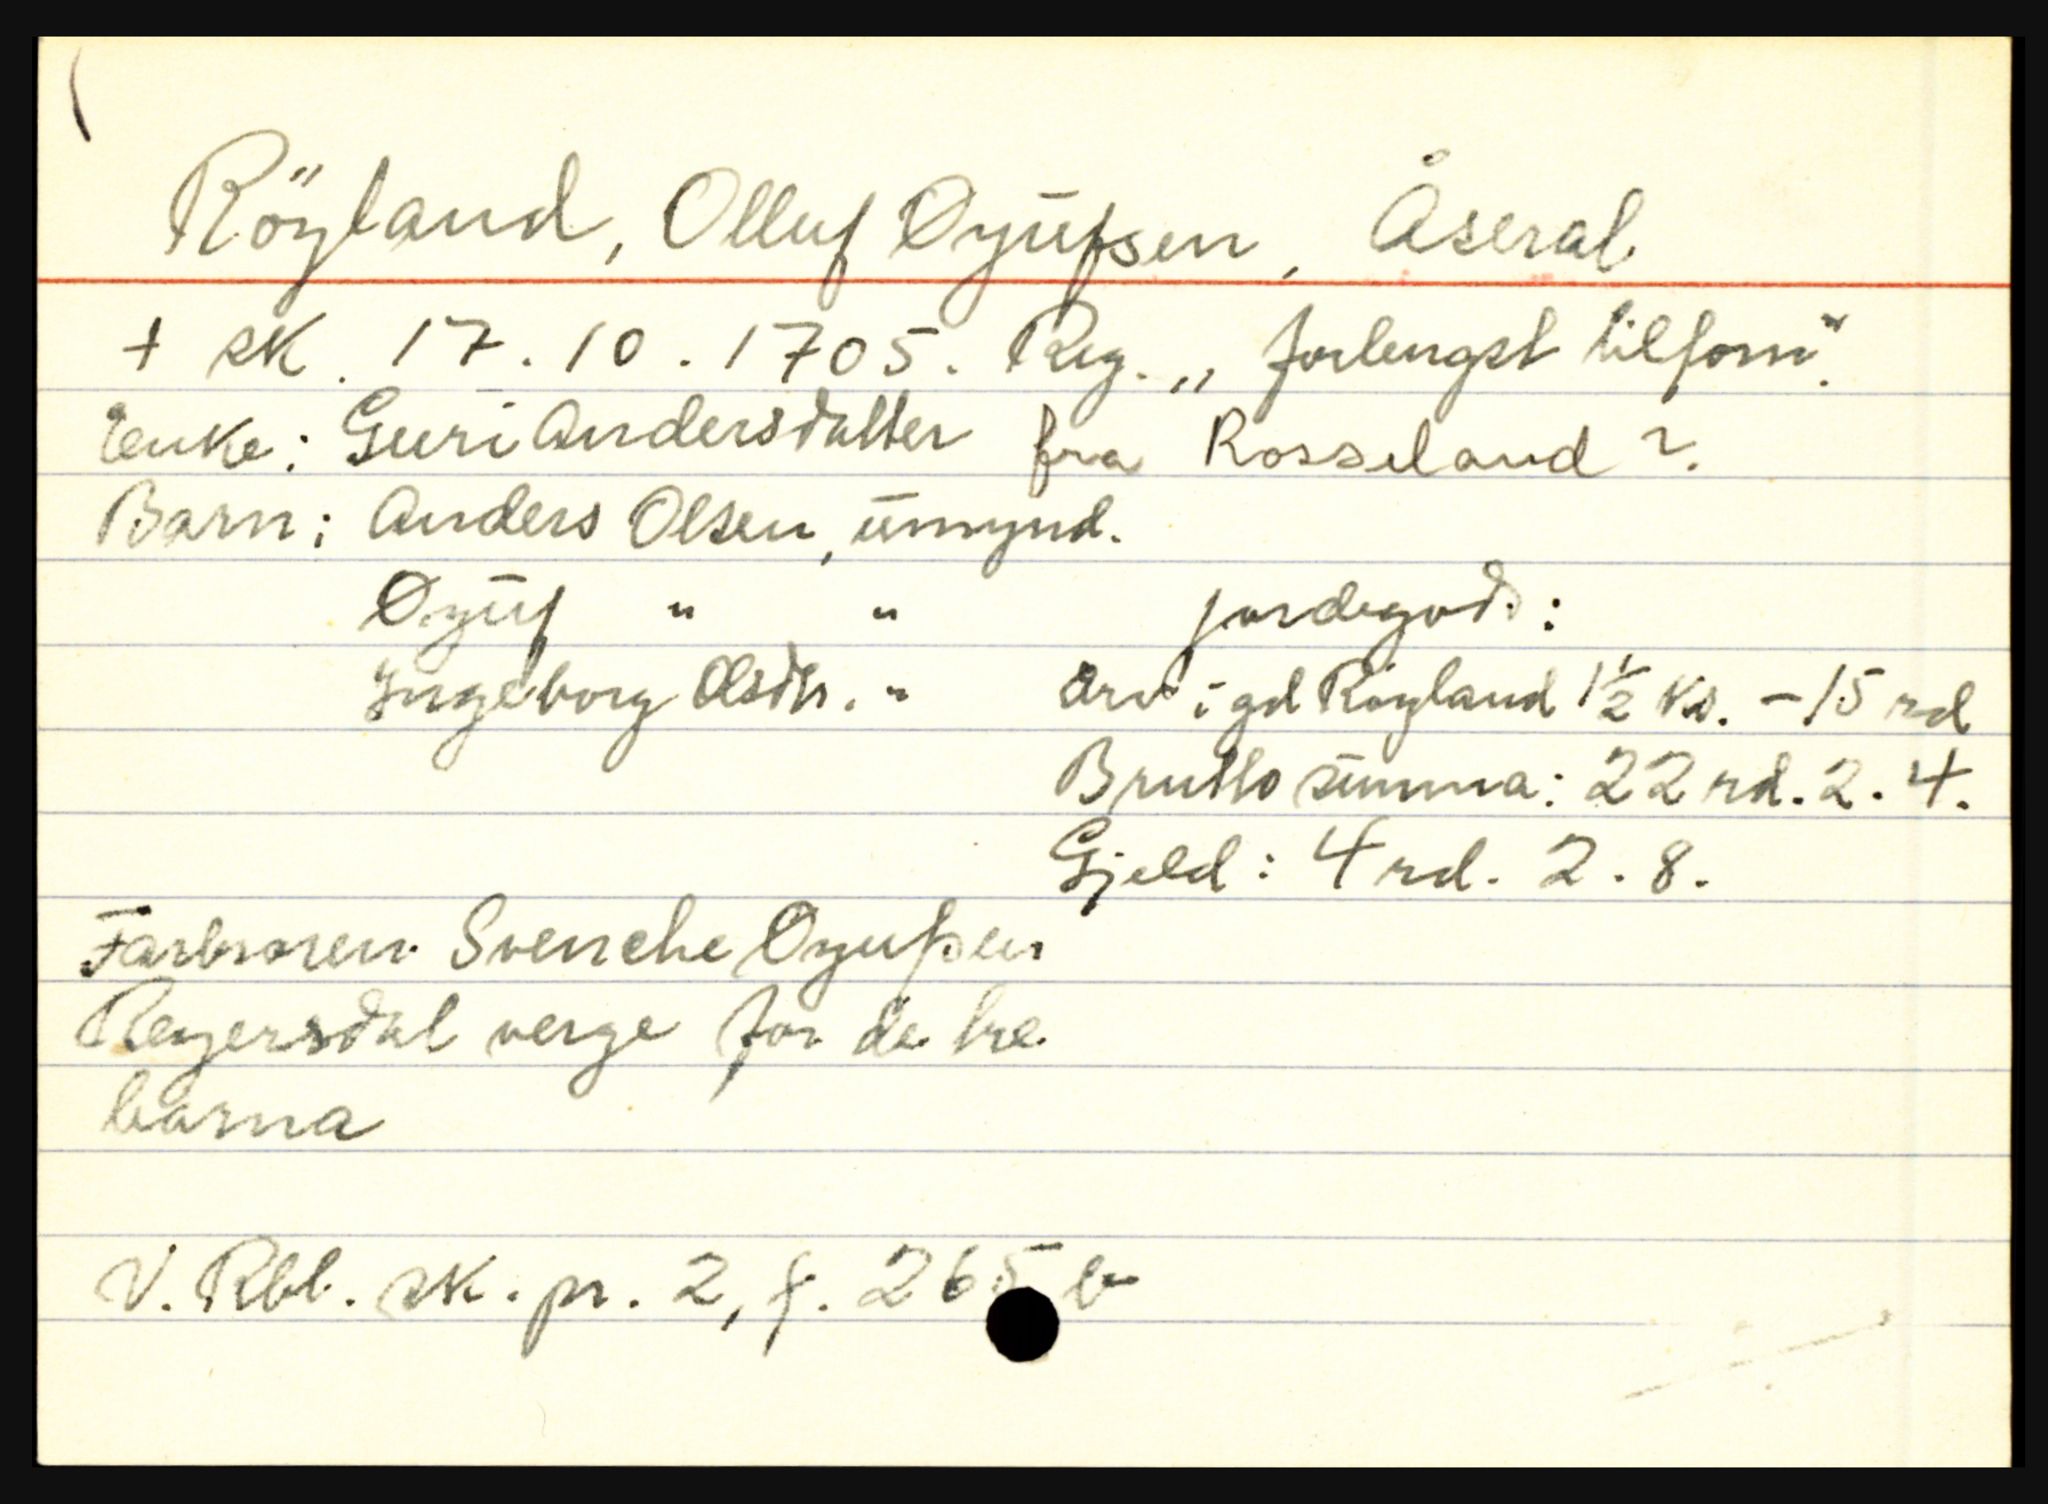 Röyland, Olluf Øyufsen, Åseral
+ sk. 17.10.1705. Reg. „forlengst tilforn".
Enke: Guri Andersdatter fra Rosseland?
Barn: Anders Olsen, umynd.
Øyuf " "
Ingeborg Olsdtr. "
jordegods:
Arv i gd Röyland 1½ ks. - 15 rd
Brutto summa: 22 rd. 2. 4.
Gjeld: 4 rd. 2. 8.
Farbroren Svenche Øyufsen
Reyersdal verge for de tre
barna
V. Rbl. sk. pr. 2, f. 265 b